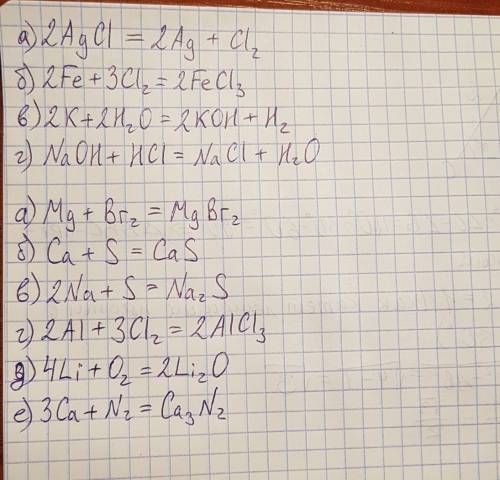 а) 2AgCl = 2Ag + Cl₂
б) 2Fe + 3Cl₂ = 2FeCl₃
в) 2K + 2H₂O = 2KOH + H₂
г) NaOH + HCl = NaCl + H₂O
а) Mg + Br₂ = MgBr₂
б) Ca + S = CaS
в) 2Na + S = Na₂S
г) 2Al + 3Cl₂ = 2AlCl₃
д) 4Li + O₂ = 2Li₂O
е) 3Ca + N₂ = Ca₃N₂